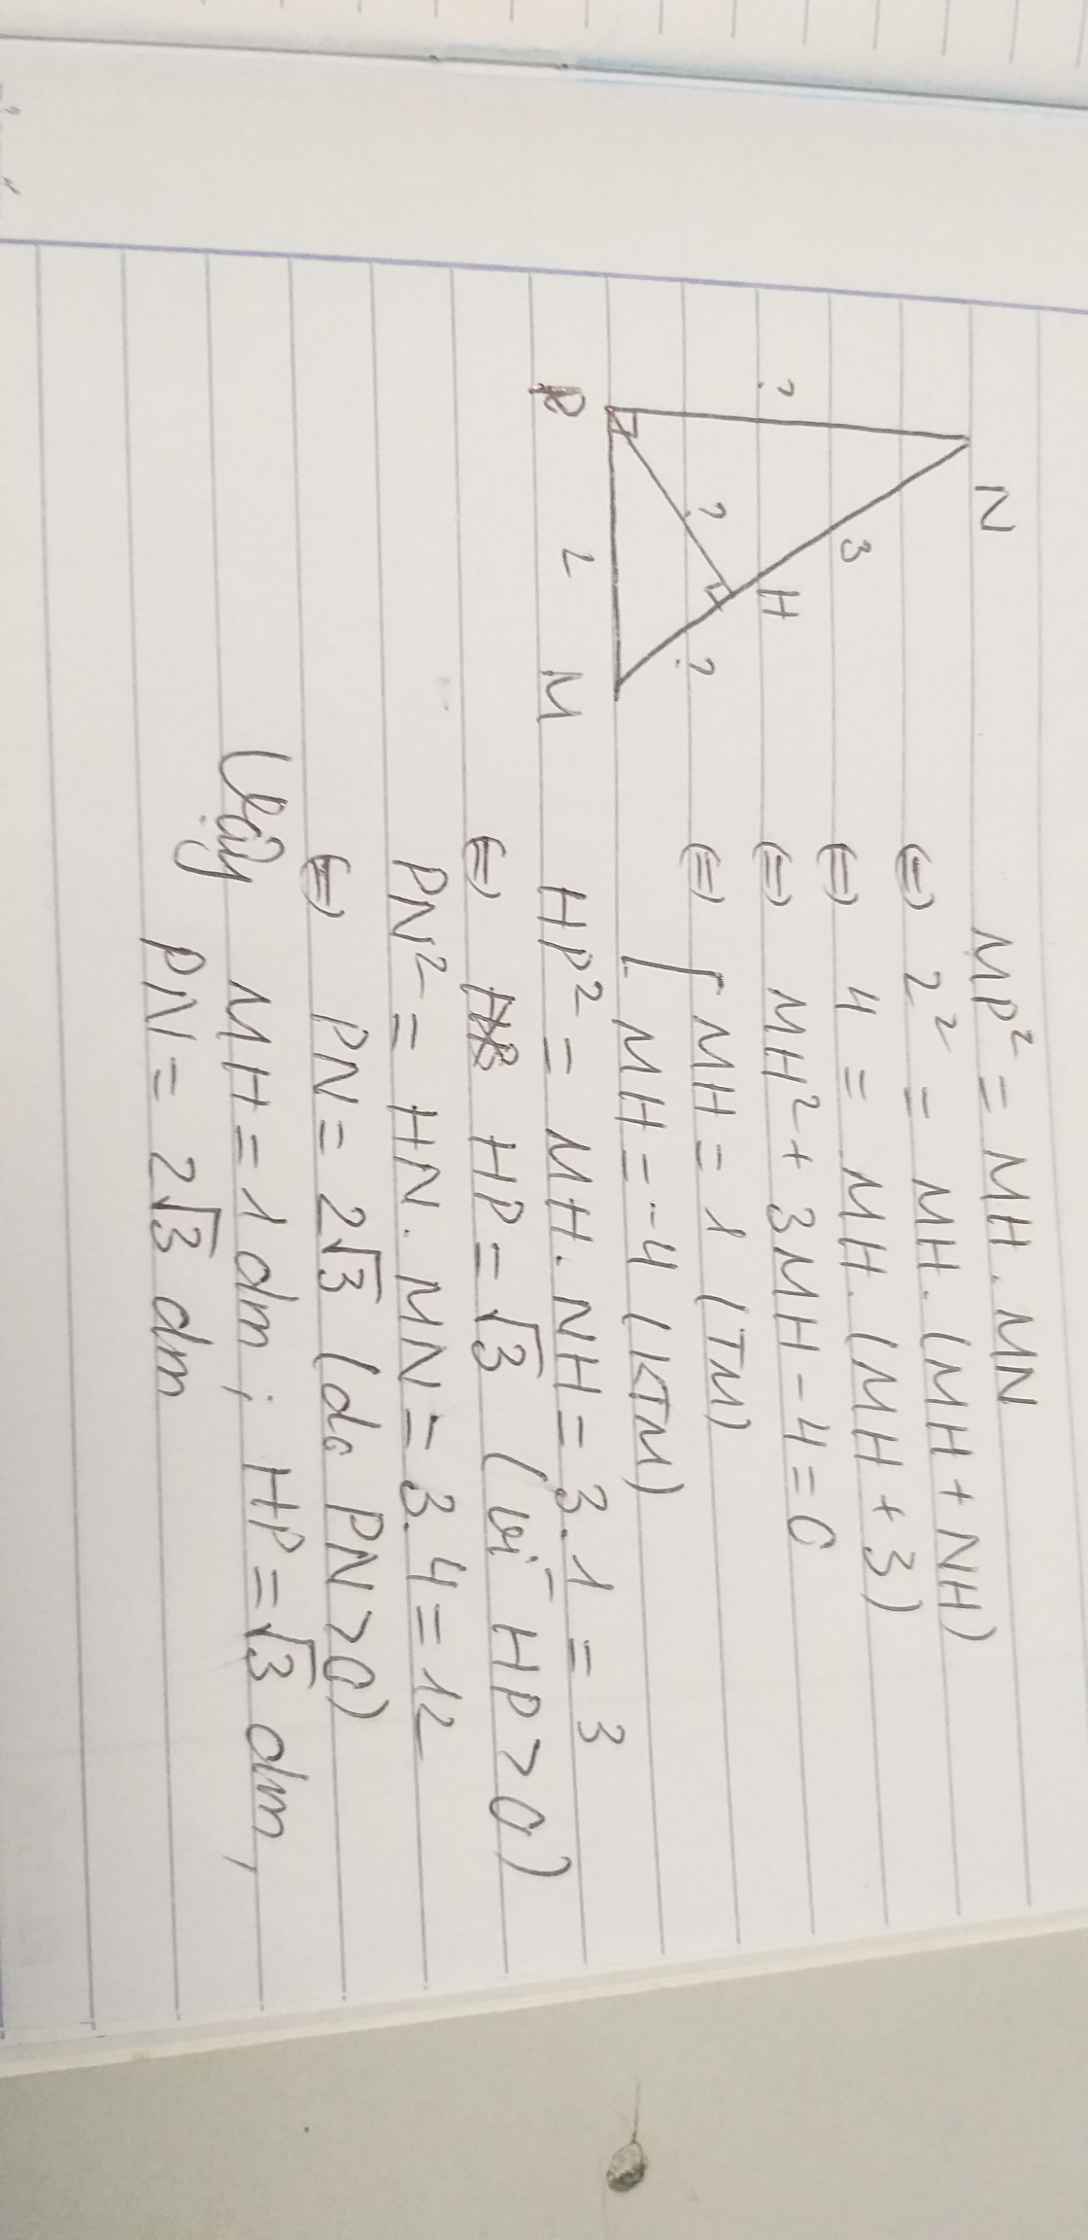 N
?
3
H
?
?
P
2
M
MP² = MH . MN
⇔ 2² = MH. (MH + NH)
⇔ 4 = MH. (MH + 3)
⇔ MH² + 3MH - 4 = 0
⇔ [ MH = 1 (TM)
[ MH = -4 (KTM)
HP² = MH. NH = 3.1 = 3
⇔ HP = √3 (vì HP > 0)
PN² = HN. MN = 3.4 = 12
⇔ PN = 2√3 (do PN > 0)
Vậy MH = 1 dm ; HP = √3 dm,
PN = 2√3 dm